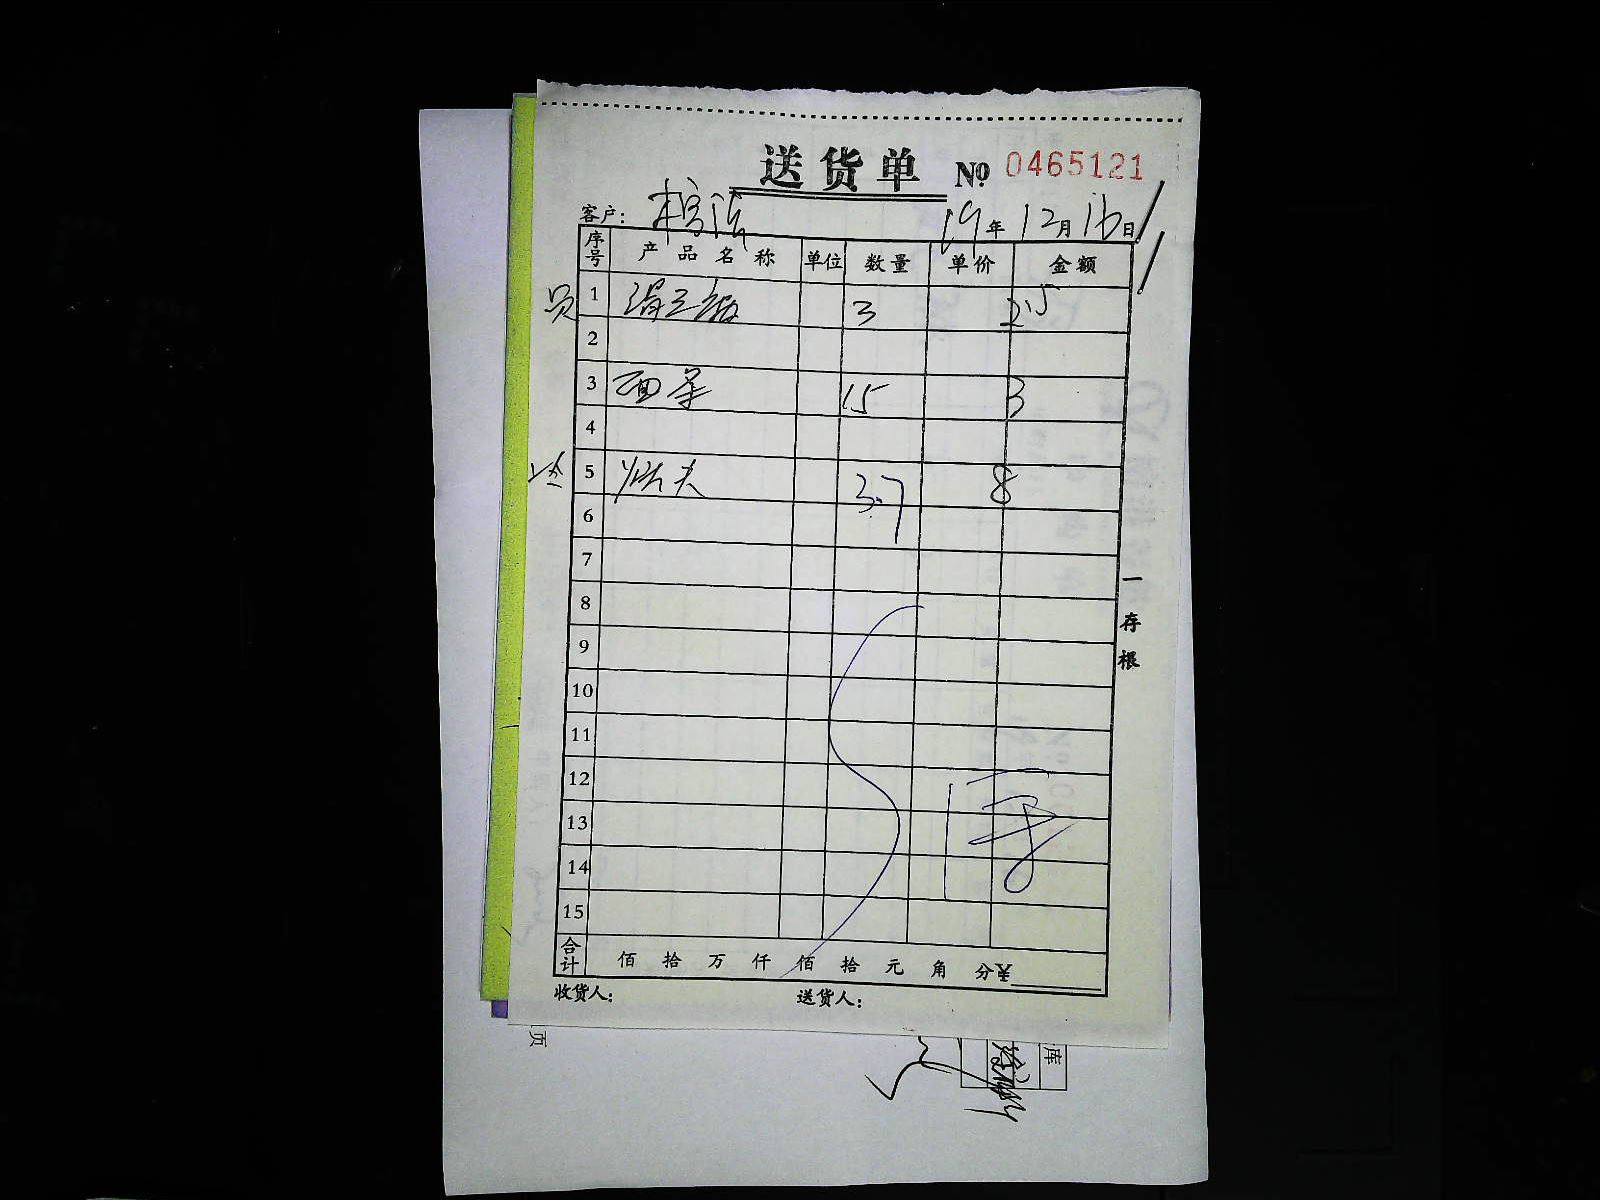 送货单 № 0465121
客户: 19年 12月 16日
序号 产品名称 单位 数量 单价 金额
员 1 3 2.5
2
3 面条 15 3
4
5 3.7 8
6
7
8
9
10
11
12
13
14
15
合计 佰 拾 万 仟 佰 拾 元 角 分¥
收货人: 送货人:
一存根
页
库